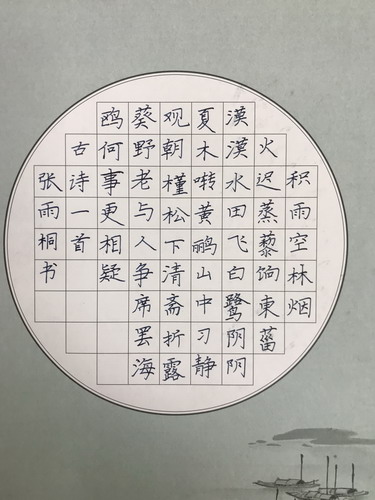 积雨空林烟
火迟蒸藜饷東菑
漠漠水田飞白鹭阴阴
夏木啭黄鹂山中习静
观朝槿松下清斋折露
葵野老与人争席罢海
鸥何事更相疑
古诗一首
张雨桐书